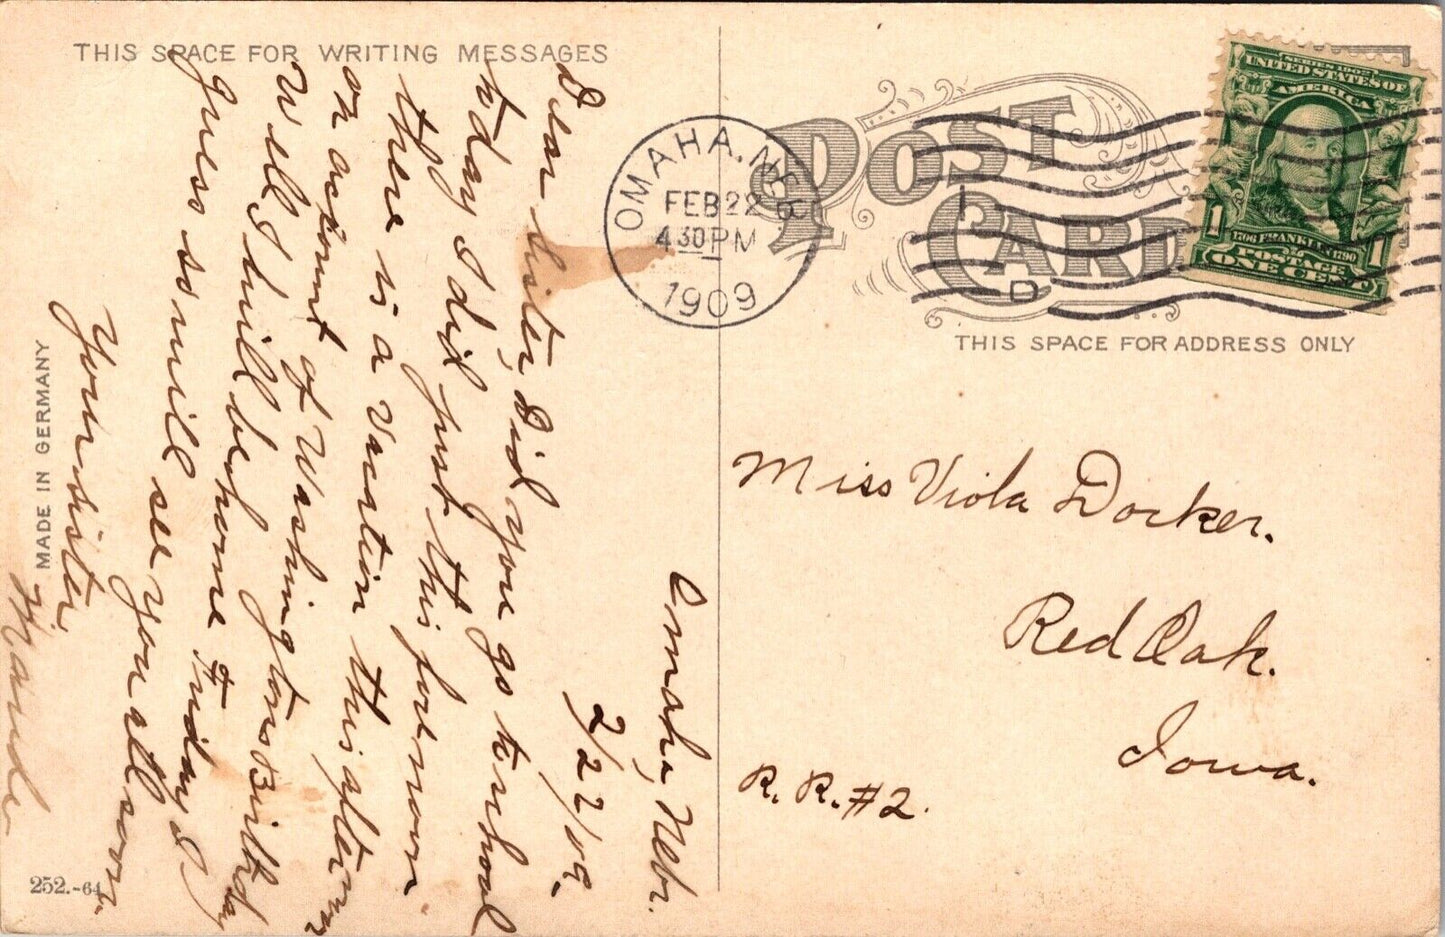 THIS SPACE FOR WRITING MESSAGES
Omaha, Nebr.
2/22/09.
Dear Sister, Did you go to school
today I did just this forenoon
there is a vacation this afternoon
on account of Washingtons Birthday
Well I will be home Friday I
guess so will see you all soon.
Your sister,
Maude
MADE IN GERMANY
252.-64
POST CARD
OMAHA. NEB.
FEB 22
4 30 PM
1909
D
SERIES 1902
UNITED STATES OF
AMERICA
1706 FRANKLIN 1790
POSTAGE
1 ONE CENT 1
THIS SPACE FOR ADDRESS ONLY
Miss Viola Dorker.
Red Oak.
Iowa.
R. R. #2.